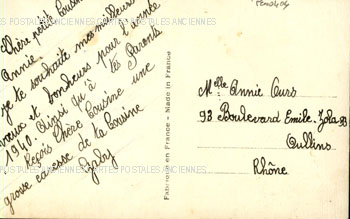 Chère petite cousine
Annie.
je te souhaite mes meilleurs
vœux et bonheurs pour l'année
1940. Ainsi qu'à tes Parents.
Reçois chère Cousine une
grosse caresse de ta Cousine
Gaby
Fabriqué en France - Made in France
Melle Annie Curs
93 Boulevard Emile-Zola 93
Oullins
Rhône
CARTES POSTALES ANCIENNES